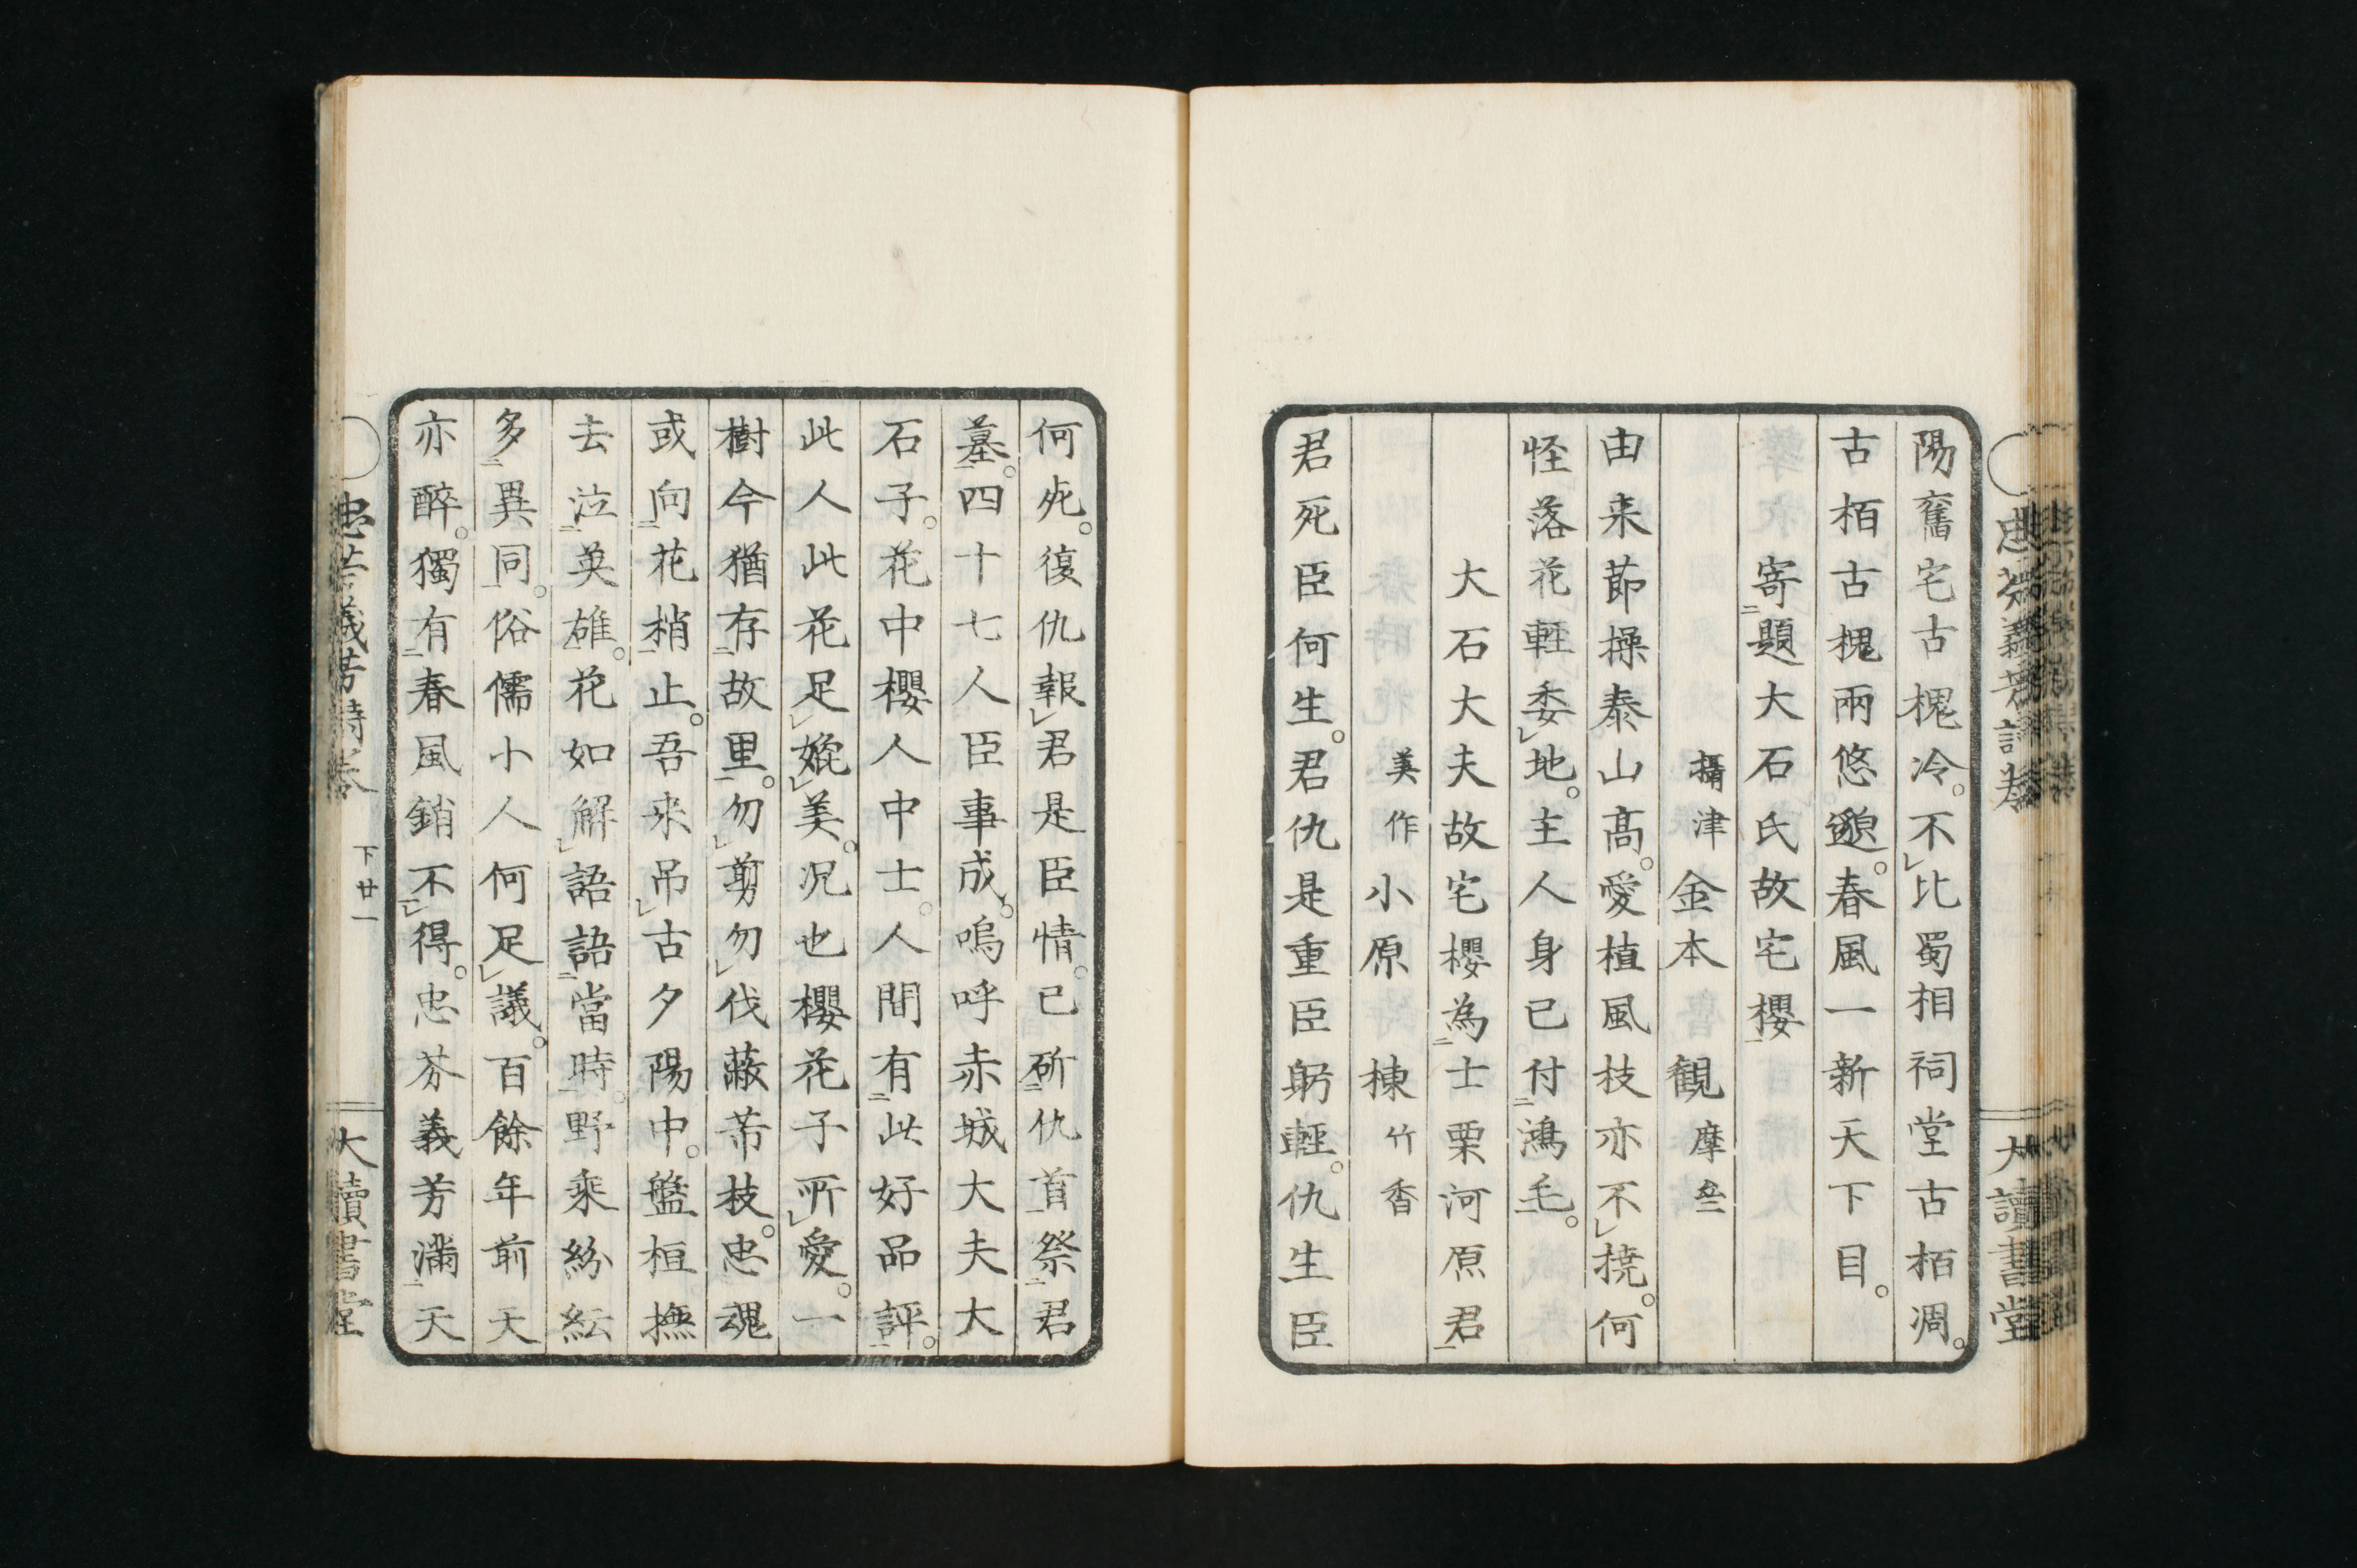 陽奮宅古槐冷。不比蜀相祠堂古栢凋。
古栢古槐兩悠邈。春風一新天下目。
寄題大石氏故宅櫻
攝津 金本 觀 摩斎
由来節操泰山高。愛植風枝亦不撓。何
怪落花輕委地。主人身已付鴻毛。
大石大夫故宅櫻為士栗河原君
美作 小原 棟 竹香
君死臣何生。君仇是重臣躬輕。仇生臣
何死。復仇報君是臣情。已斫仇首祭君
墓。四十七人臣事成。嗚呼赤城大夫大
石子。花中櫻人中士。人間有此好品評。
此人此花足媲美。况也櫻花子所愛。一
樹今猶存故里。勿剪勿伐蔽芾枝。忠魂
或向花梢止。吾来吊古夕陽中。盤桓撫
去泣英雄。花如解語語當時。野乘紛紜
多異同。俗儒小人何足議。百餘年前天
亦醉。獨有春風銷不得。忠芬義芳滿天
忠芬義芳詩巻 下廿一 大讀書堂